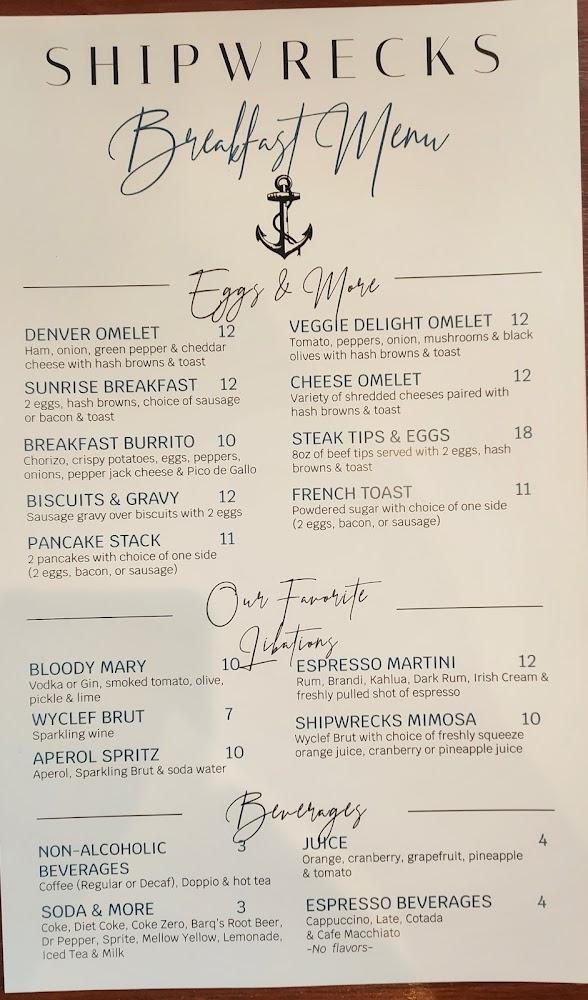 SHIPWRECKS
Breakfast Menu
Eggs & More
DENVER OMELET 12
Ham, onion, green pepper & cheddar
cheese with hash browns & toast
SUNRISE BREAKFAST 12
2 eggs, hash browns, choice of sausage
or bacon & toast
BREAKFAST BURRITO 10
Chorizo, crispy potatoes, eggs, peppers,
onions, pepper jack cheese & Pico de Gallo
BISCUITS & GRAVY 12
Sausage gravy over biscuits with 2 eggs
PANCAKE STACK 11
2 pancakes with choice of one side
(2 eggs, bacon, or sausage)
VEGGIE DELIGHT OMELET 12
Tomato, peppers, onion, mushrooms & black
olives with hash browns & toast
CHEESE OMELET 12
Variety of shredded cheeses paired with
hash browns & toast
STEAK TIPS & EGGS 18
8oz of beef tips served with 2 eggs, hash
browns & toast
FRENCH TOAST 11
Powdered sugar with choice of one side
(2 eggs, bacon, or sausage)
Our Favorite
Libations
BLOODY MARY 10
Vodka or Gin, smoked tomato, olive,
pickle & lime
WYCLEF BRUT 7
Sparkling wine
APEROL SPRITZ 10
Aperol, Sparkling Brut & soda water
ESPRESSO MARTINI 12
Rum, Brandi, Kahlua, Dark Rum, Irish Cream &
freshly pulled shot of espresso
SHIPWRECKS MIMOSA 10
Wyclef Brut with choice of freshly squeeze
orange juice, cranberry or pineapple juice
Beverages
NON-ALCOHOLIC 3
BEVERAGES
Coffee (Regular or Decaf), Doppio & hot tea
SODA & MORE 3
Coke, Diet Coke, Coke Zero, Barq's Root Beer,
Dr Pepper, Sprite, Mellow Yellow, Lemonade,
Iced Tea & Milk
JUICE 4
Orange, cranberry, grapefruit, pineapple
& tomato
ESPRESSO BEVERAGES 4
Cappuccino, Late, Cotada
& Cafe Macchiato
-No flavors-